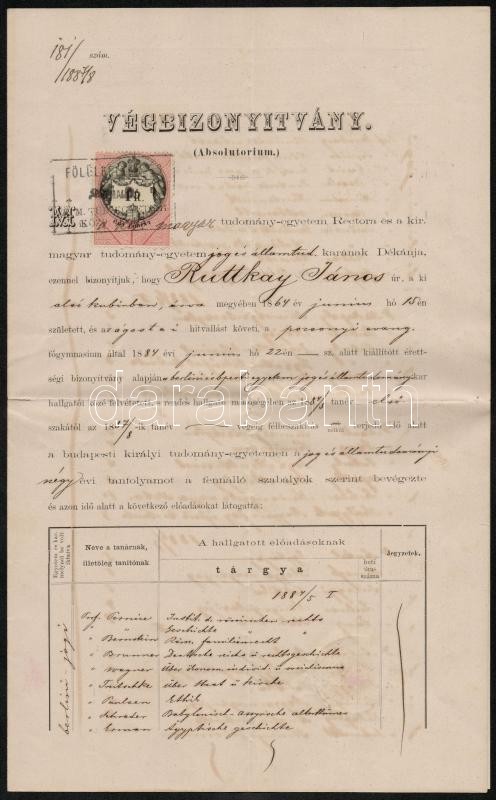 181/ szám.
1887/8
VÉGBIZONYITVÁNY.
(Absolutorium.)
FÖLÜL
1 Ft
magyar tudomány-egyetem Rectora és a kir.
magyar tudomány-egyetem jog és államtud. karának Dékánja,
ezennel bizonyitjuk, hogy Ruttkay János úr, a ki
alsó kubinban, árva megyében 1864 év junius hó 15-én
született, és az ágostai hitvallást követi, a pozsonyi evang.
főgymnasium által 1884 évi junius hó 22-én — sz. alatt kiállított érett-
ségi bizonyítvány alapján a berlini és bpesti egyetem jog és államtudományi kar
hallgatói közé felvétetett, s rendes hallgató minőségében az 1884/5 tanév első
szakától az 1887/8-ik tanév végéig félbeszakítás nélkül terjedő idő alatt
a budapesti királyi tudomány-egyetemen a jog és államtudományi
négy évi tanfolyamot a fennálló szabályok szerint bevégezte
és azon idő alatt a következő előadásokat látogatta:
Neve a tanárnak, illetőleg tanítónak
A hallgatott előadásoknak
tárgya
heti óraszáma
Jegyzetek.
berlini jogi
1884/5 I
Prof. Pernice Instit. d. römischen rechts
" " Geschichte "
" Bernstein Röm. familienrecht
" Brunner Deutsche reichs u rechtsgeschichte
" Wagner Über
" Treitschke über Staat u Kirche
" Paulsen Ethik
" Schrader Babylonisch-assyrische alterthümer
" Erman Ägyptische geschichte
darabanth